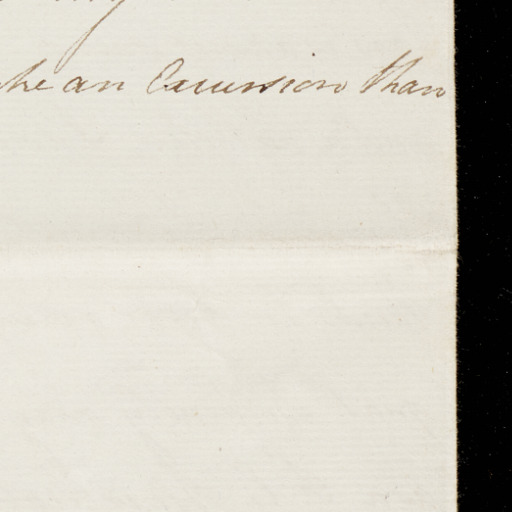 he an Excursion than